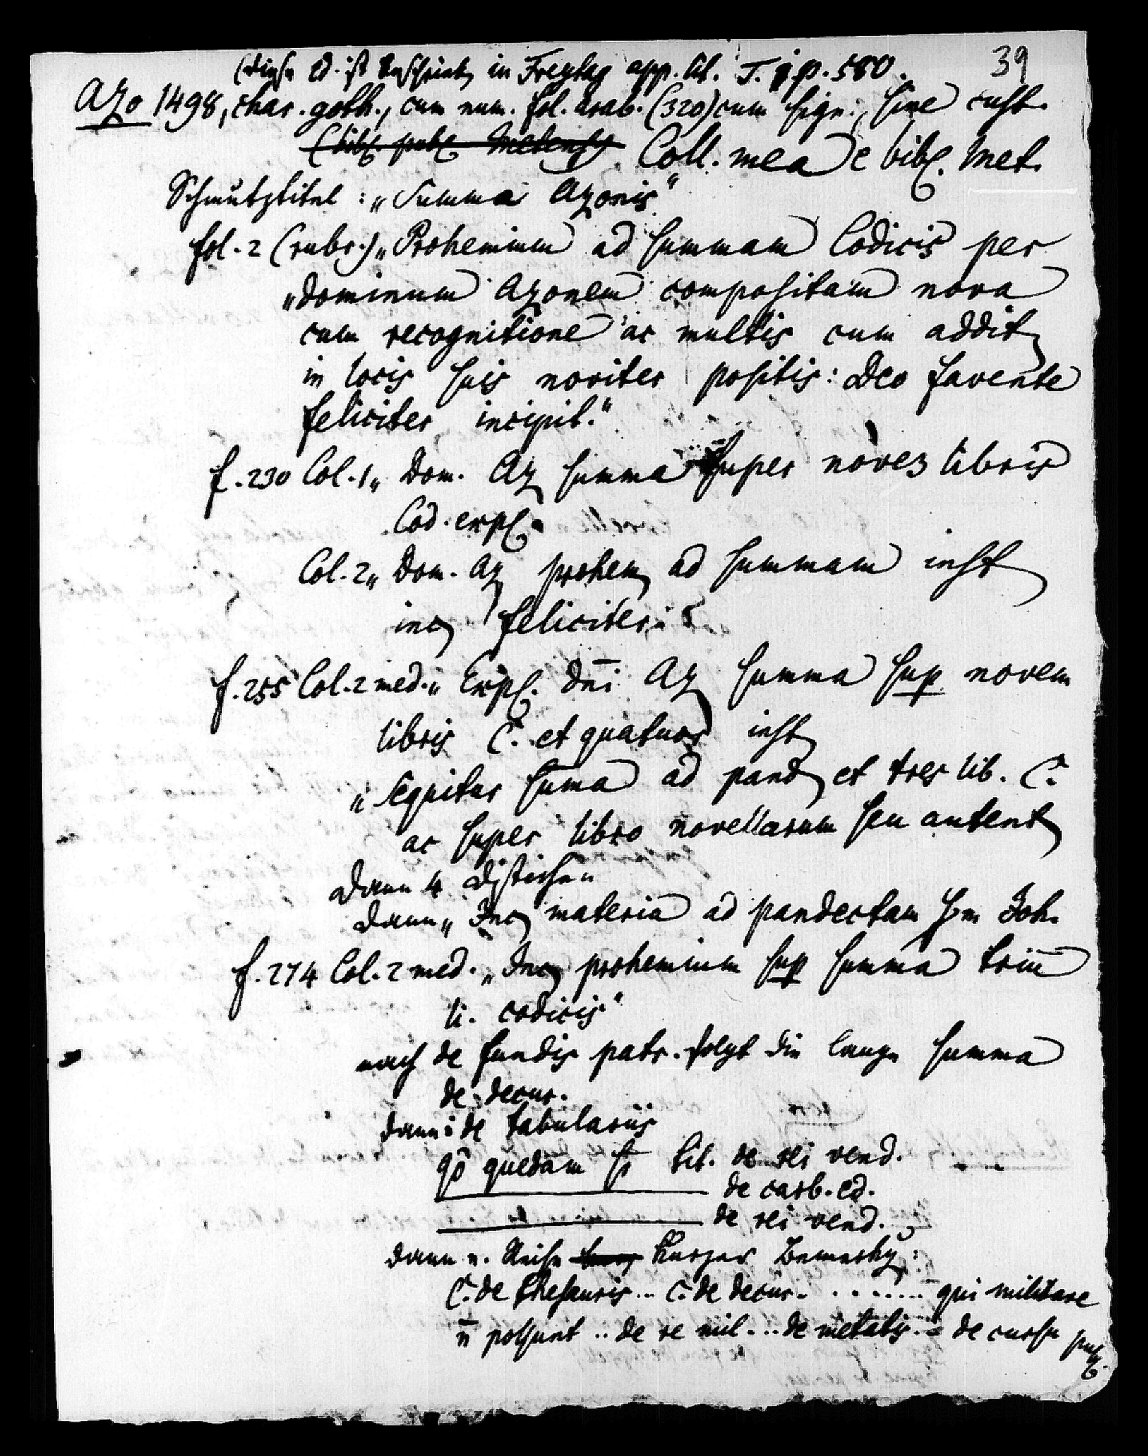 39
(diese Ed. ist beschrieben in Freytag app. lit. T. 1 p. 580.
Azo 1498, char. goth., cum num. fol. arab. (320) cum sign., sine cust.
(bibl. publ. Metensis Coll. mea e bibl. Met.
Schmutztitel: „Summa Azonis“
fol. 2 (rubr.) „Prohemium ad summam Codicis per
„dominum Azonem compositam nova
cum recognitione ac multis cum addit
in locis suis noviter positis: Deo favente
feliciter incipit.“
f. 230 Col. 1 „Dom. Az summa super novem libris
Cod. expl.“
Col. 2 „Dom. Az prohem ad summam inst
inc feliciter:“
f. 255 Col. 2 med. „Expl. dni Az summa sup novem
libris C. et quatuor inst
„Sequitur suma ad pand et tres lib. C.
ac super libro novellarum seu autent
Dann 4 Distichen
Dann „Inc materia ad pandectam scdm Joh.
f. 274 Col. 2 med. „Inc prohemium sup summa trium
li. codicis“
nach de fundis patr. folgt die lange summa
de decur.
dann: de tabulariis
qo quedam tit. de rei vend.
de carb. ed.
de rei vend.
dann e. Reihe kurzer Bemerkg:
C. de thesauris .. C. de decur. . . . . . . qui militare
n possunt .. de re mil. ... de metatis .. de cursu publ.